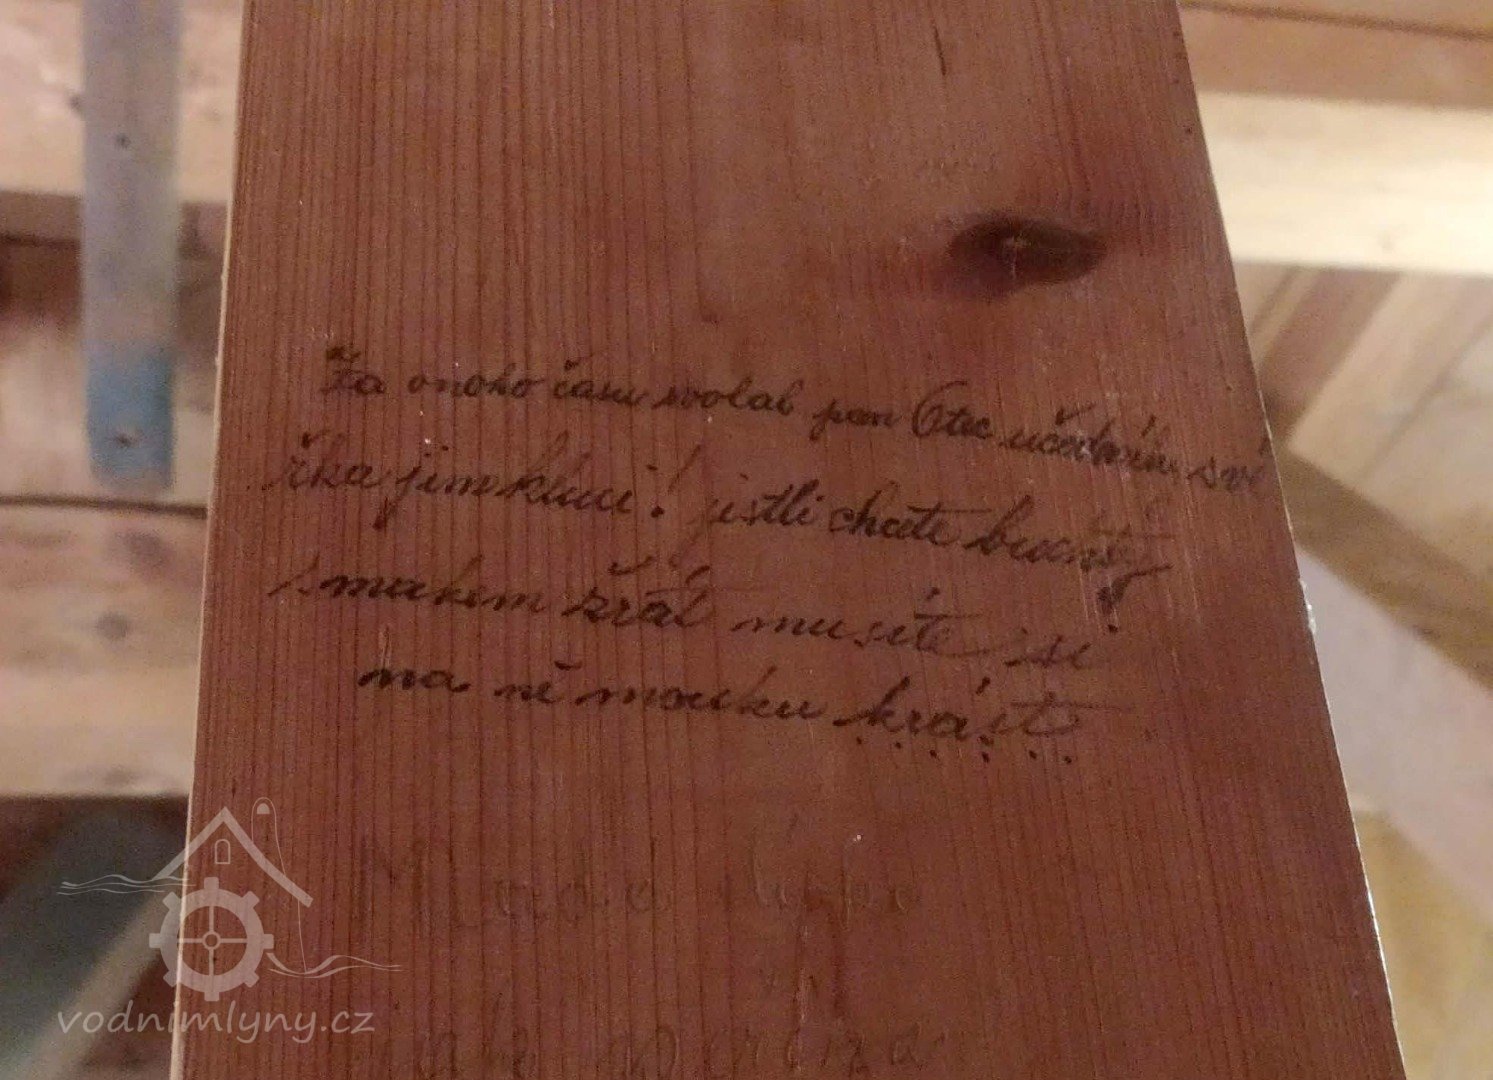 Za onoho času svolal pan Otec učedníky své
řka jim kluci! jistli chcete buchty
s makem žrát musíte si
na ně mouku krást
vodnimlyny.cz